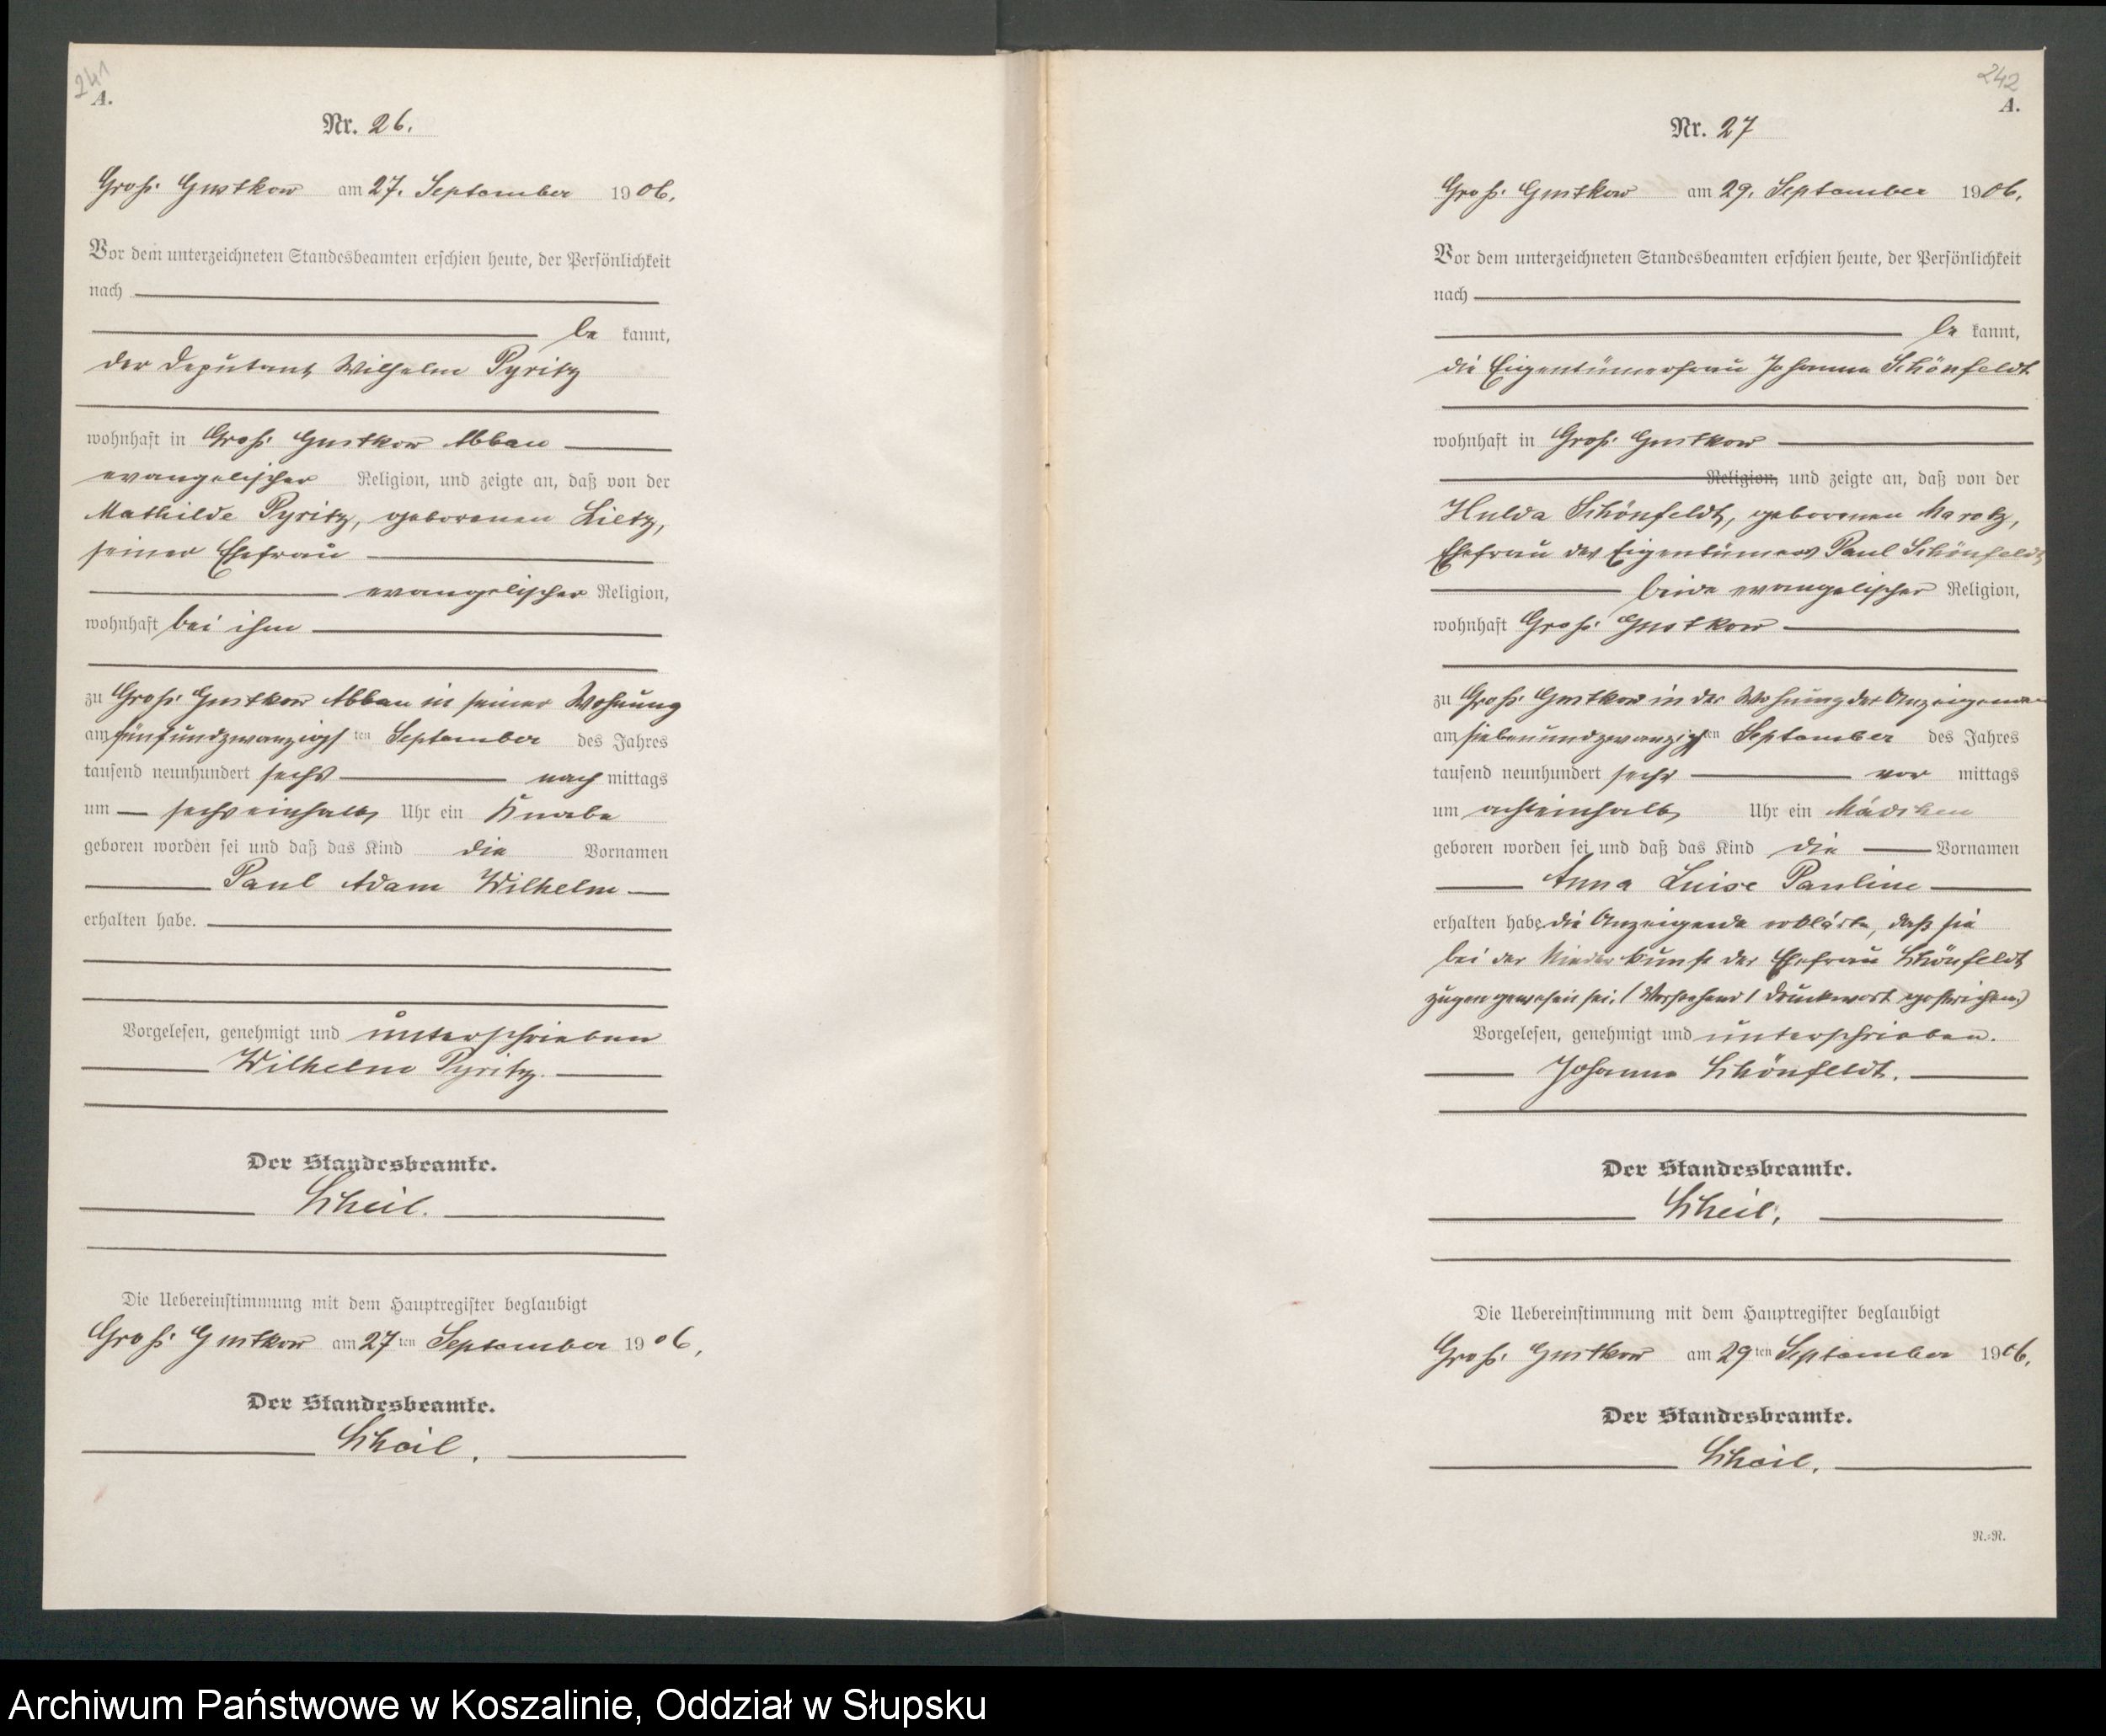 241
A.
Nr. 26.
Groß Gustkow am 27. September 1906.
Vor dem unterzeichneten Standesbeamten erschien heute, der Persönlichkeit
nach
be kannt,
der Deputant Wilhelm Pyritz
wohnhaft in Groß Gustkow Abbau
evangelischer Religion, und zeigte an, daß von der
Mathilde Pyritz, geborenen Lietz,
seiner Ehefrau
evangelischer Religion,
wohnhaft bei ihm
zu Groß Gustkow Abbau in seiner Wohnung
am fünfundzwanzigsten September des Jahres
tausend neunhundert sechs nach mittags
um sechseinhalb Uhr ein Knabe
geboren worden sei und daß das Kind die Vornamen
Paul Adam Wilhelm
erhalten habe.
Vorgelesen, genehmigt und unterschrieben
Wilhelm Pyritz.
Der Standesbeamte.
Scheil.
Die Uebereinstimmung mit dem Hauptregister beglaubigt
Groß Gustkow am 27ten September 1906.
Der Standesbeamte.
Scheil.
242
A.
Nr. 27
Groß Gustkow am 29. September 1906.
Vor dem unterzeichneten Standesbeamten erschien heute, der Persönlichkeit
nach
be kannt,
die Eigentümerfrau Johanna Schönfeldt
wohnhaft in Groß Gustkow
Religion, und zeigte an, daß von der
Hulda Schönfeldt, geborenen Marotz,
Ehefrau des Eigentümers Paul Schönfeldt
beide evangelischer Religion,
wohnhaft Groß Gustkow
zu Groß Gustkow in der Wohnung der Anzeigenden
am siebenundzwanzigsten September des Jahres
tausend neunhundert sechs vor mittags
um achteinhalb Uhr ein Mädchen
geboren worden sei und daß das Kind die Vornamen
Anna Luise Pauline
erhalten habe. die Anzeigende erklärte, daß sie
bei der Niederkunft der Ehefrau Schönfeldt
zugegen gewesen sei. (Vorstehend 1 Druckwort gestrichen)
Vorgelesen, genehmigt und unterschrieben.
Johanna Schönfeldt.
Der Standesbeamte.
Scheil.
Die Uebereinstimmung mit dem Hauptregister beglaubigt
Groß Gustkow am 29ten September 1906.
Der Standesbeamte.
Scheil.
N.=R.
Archiwum Państwowe w Koszalinie, Oddział w Słupsku